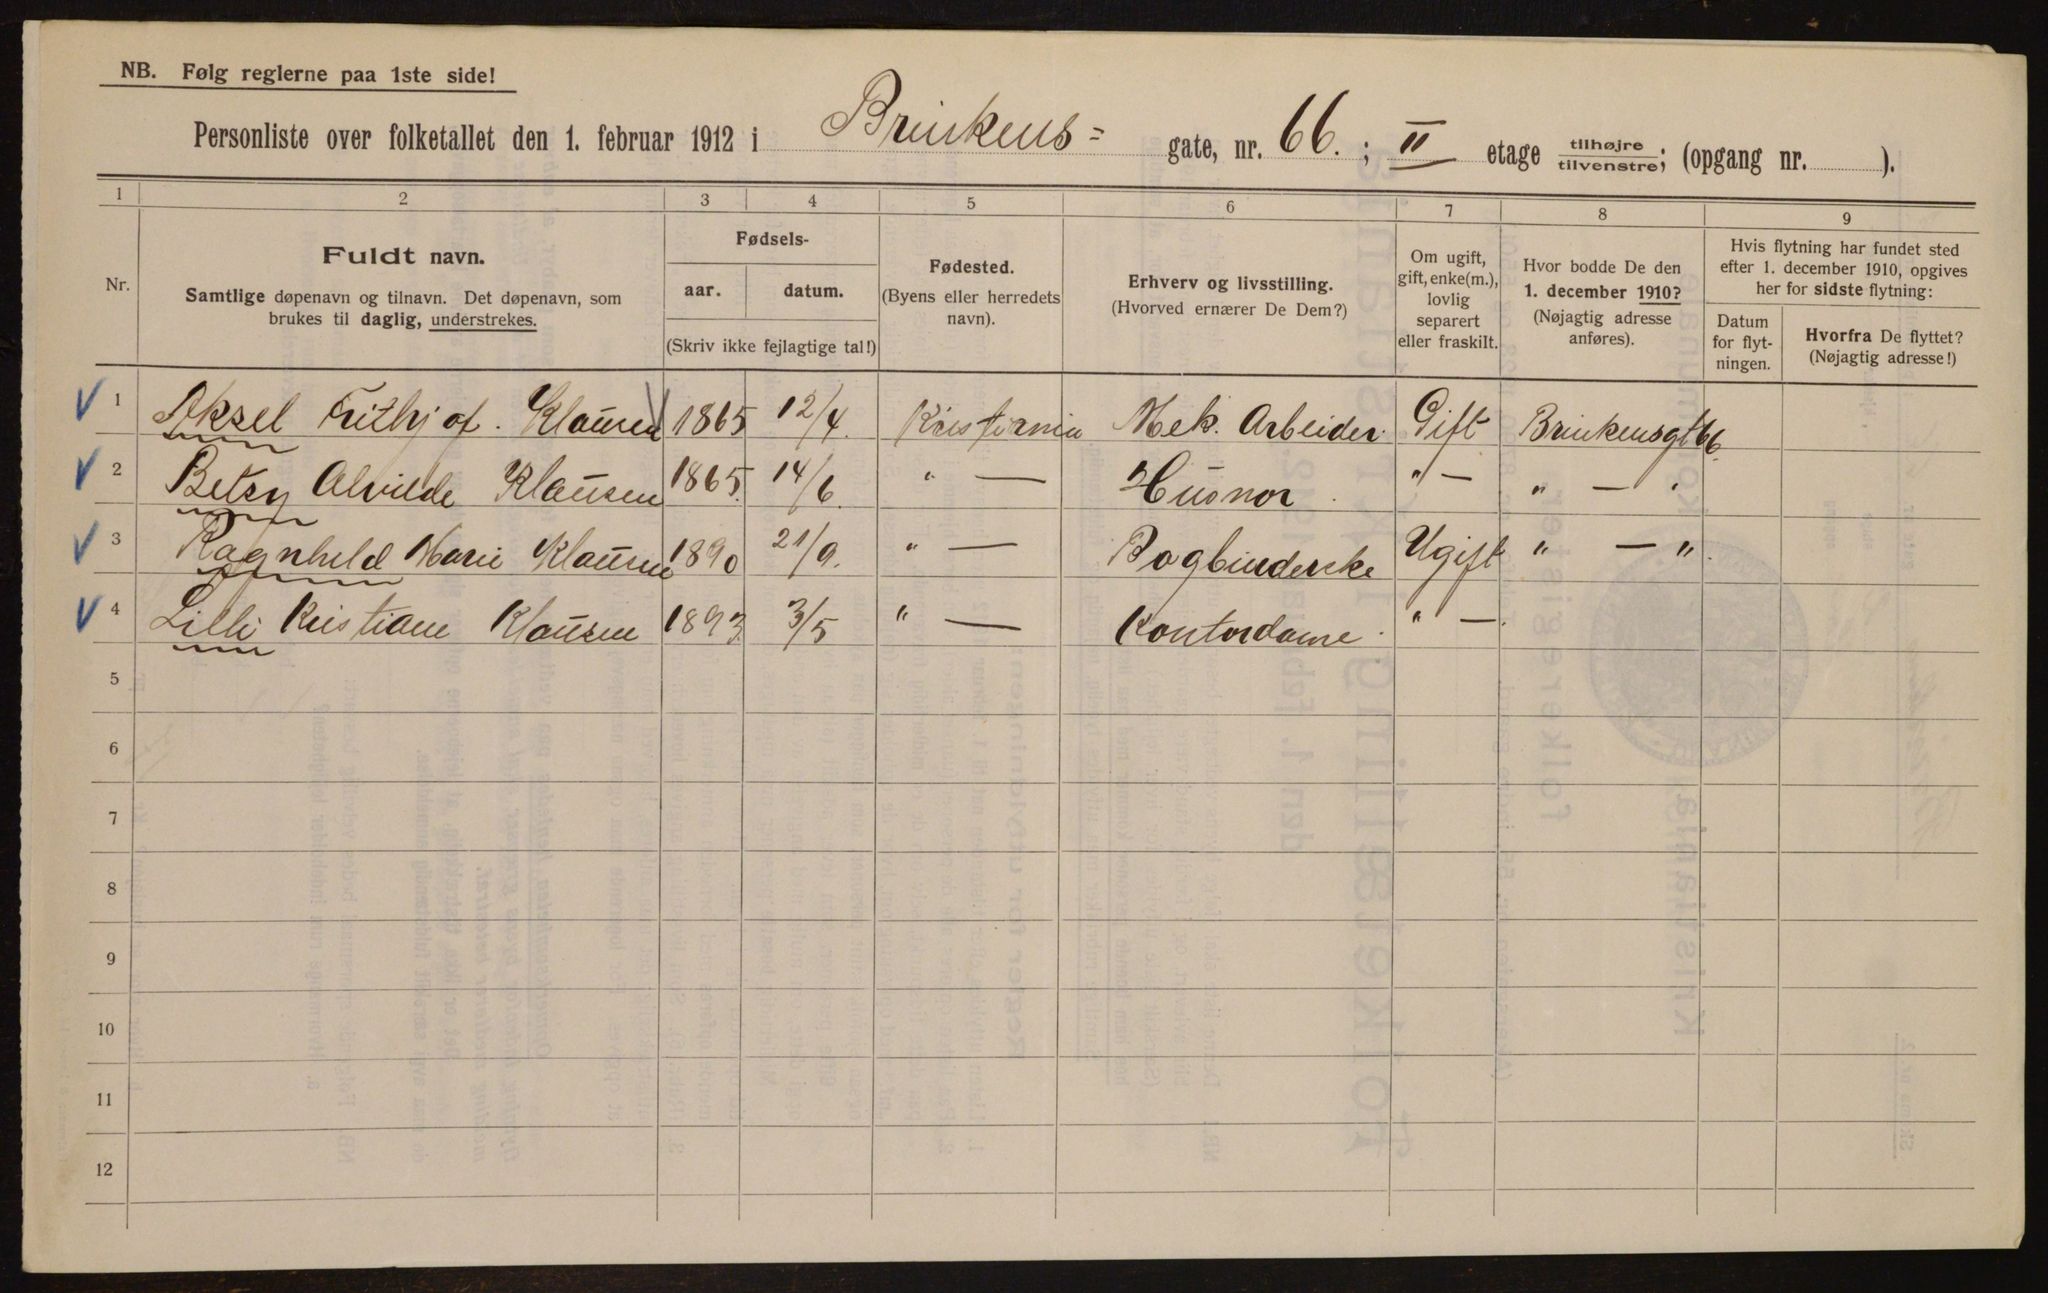 NB. Følg reglerne paa 1ste side!
Personliste over folketallet den 1. februar 1912 i Brinkens= gate, nr. 66. ; II etage tilhøjre tilvenstre; (opgang nr. ).
1 2 3 4 5 6 7 8 9
Nr.
Fuldt navn.
Samtlige døpenavn og tilnavn. Det døpenavn, som
brukes til daglig, understrekes.
Fødsels-
aar. datum.
(Skriv ikke fejlagtige tal!)
Fødested.
(Byens eller herredets
navn).
Erhverv og livsstilling.
(Hvorved ernærer De Dem?)
Om ugift,
gift, enke(m.),
lovlig
separert
eller fraskilt.
Hvor bodde De den
1. december 1910?
(Nøjagtig adresse
anføres).
Hvis flytning har fundet sted
efter 1. december 1910, opgives
her for sidste flytning:
Datum
for flyt-
ningen.
Hvorfra De flyttet?
(Nøjagtig adresse!)
1 Aksel Frithjof. Klausen 1865 12/4. Kristiania Mek. Arbeider. Gift Brinkensgt 66.
2 Betzy Alvilde Klausen 1865. 14/6. " — Husmor. " — " — "
3 Ragnhild Marie Klausen 1890 21/9. " — Bogbinderske Ugift " — ".
4 Lilli Kristiane Klausen 1893 3/5 " — Kontordame. " —.
5
6
7
8
9
10
11
12